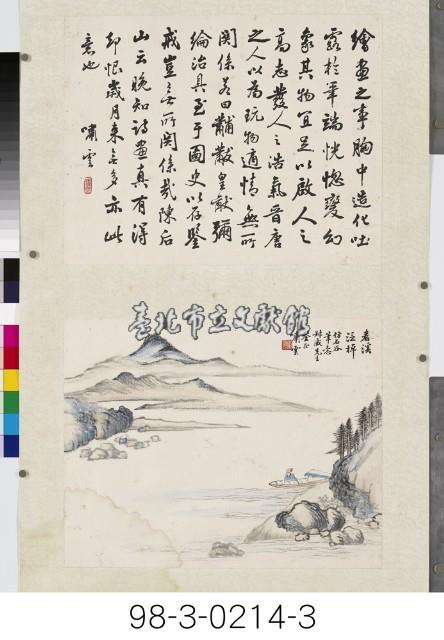 繪畫之事胸中造化吐
露於筆端恍惚變幻
象其物宜足以啟人之
高志發人之浩氣晉唐
之人以為玩物適情無所
關係若曰黼黻皇猷彌
綸治具至于圖史以存鑒
戒豈無所關係哉陳后
山云晚知詩畫真有得
却恨歲月來無多亦此
意也 嘯雲
臺北市立文獻館
春溪
泛棹
筆意
先生
嘯雲
98-3-0214-3